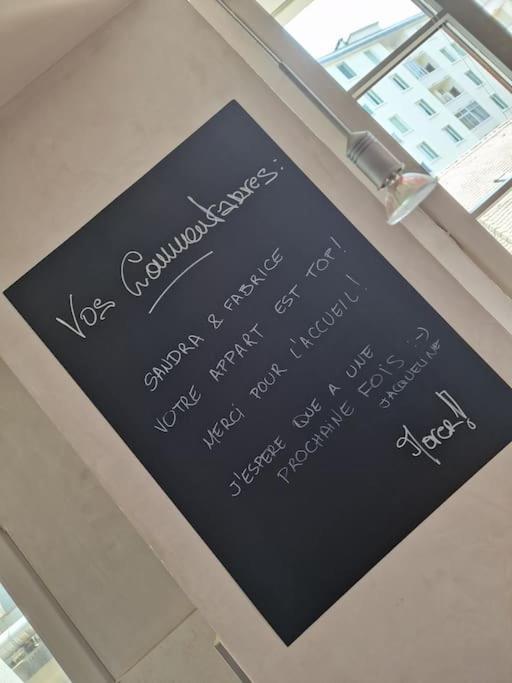 Vos Commentaires:
SANDRA & FABRICE
VOTRE APPART EST TOP!
MERCI POUR L'ACCUEIL!
J'ESPERE QUE A UNE
PROCHAINE FOIS :-)
JACQUELINE